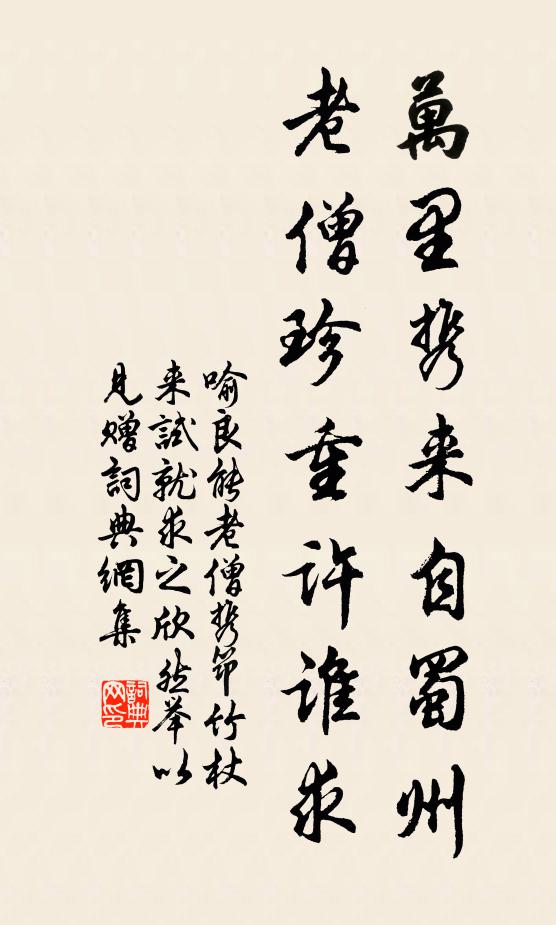 萬里携来自蜀州
老僧珍重許誰求
喻良能老僧携笻竹杖
来試就求之欣然举以
見贈詞典網集
詞典
网印